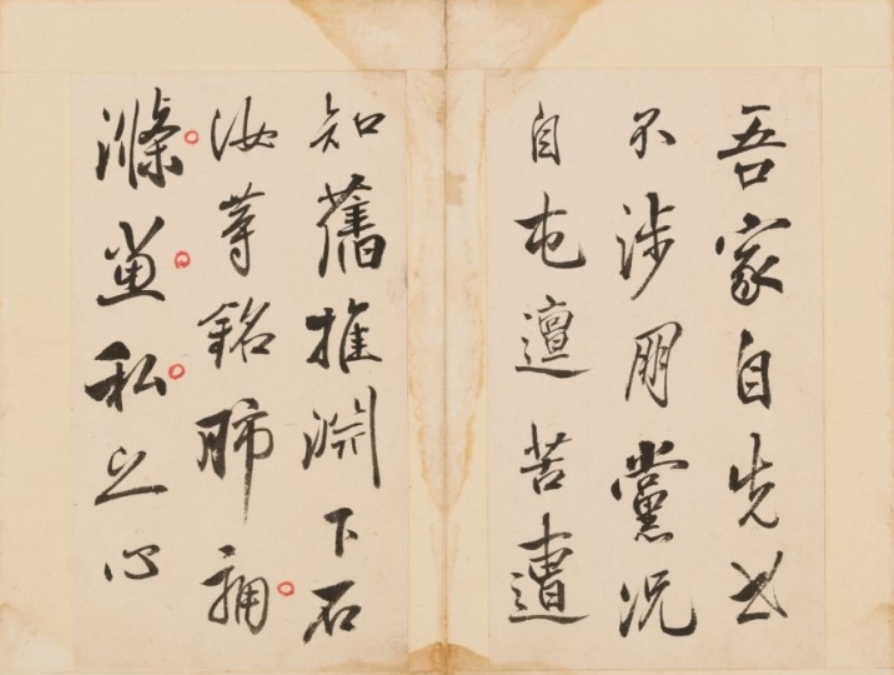 吾家自先世
不涉朋黨況
自屯邅苦遭
知舊推淵下石
汝等銘肺
滌私之心